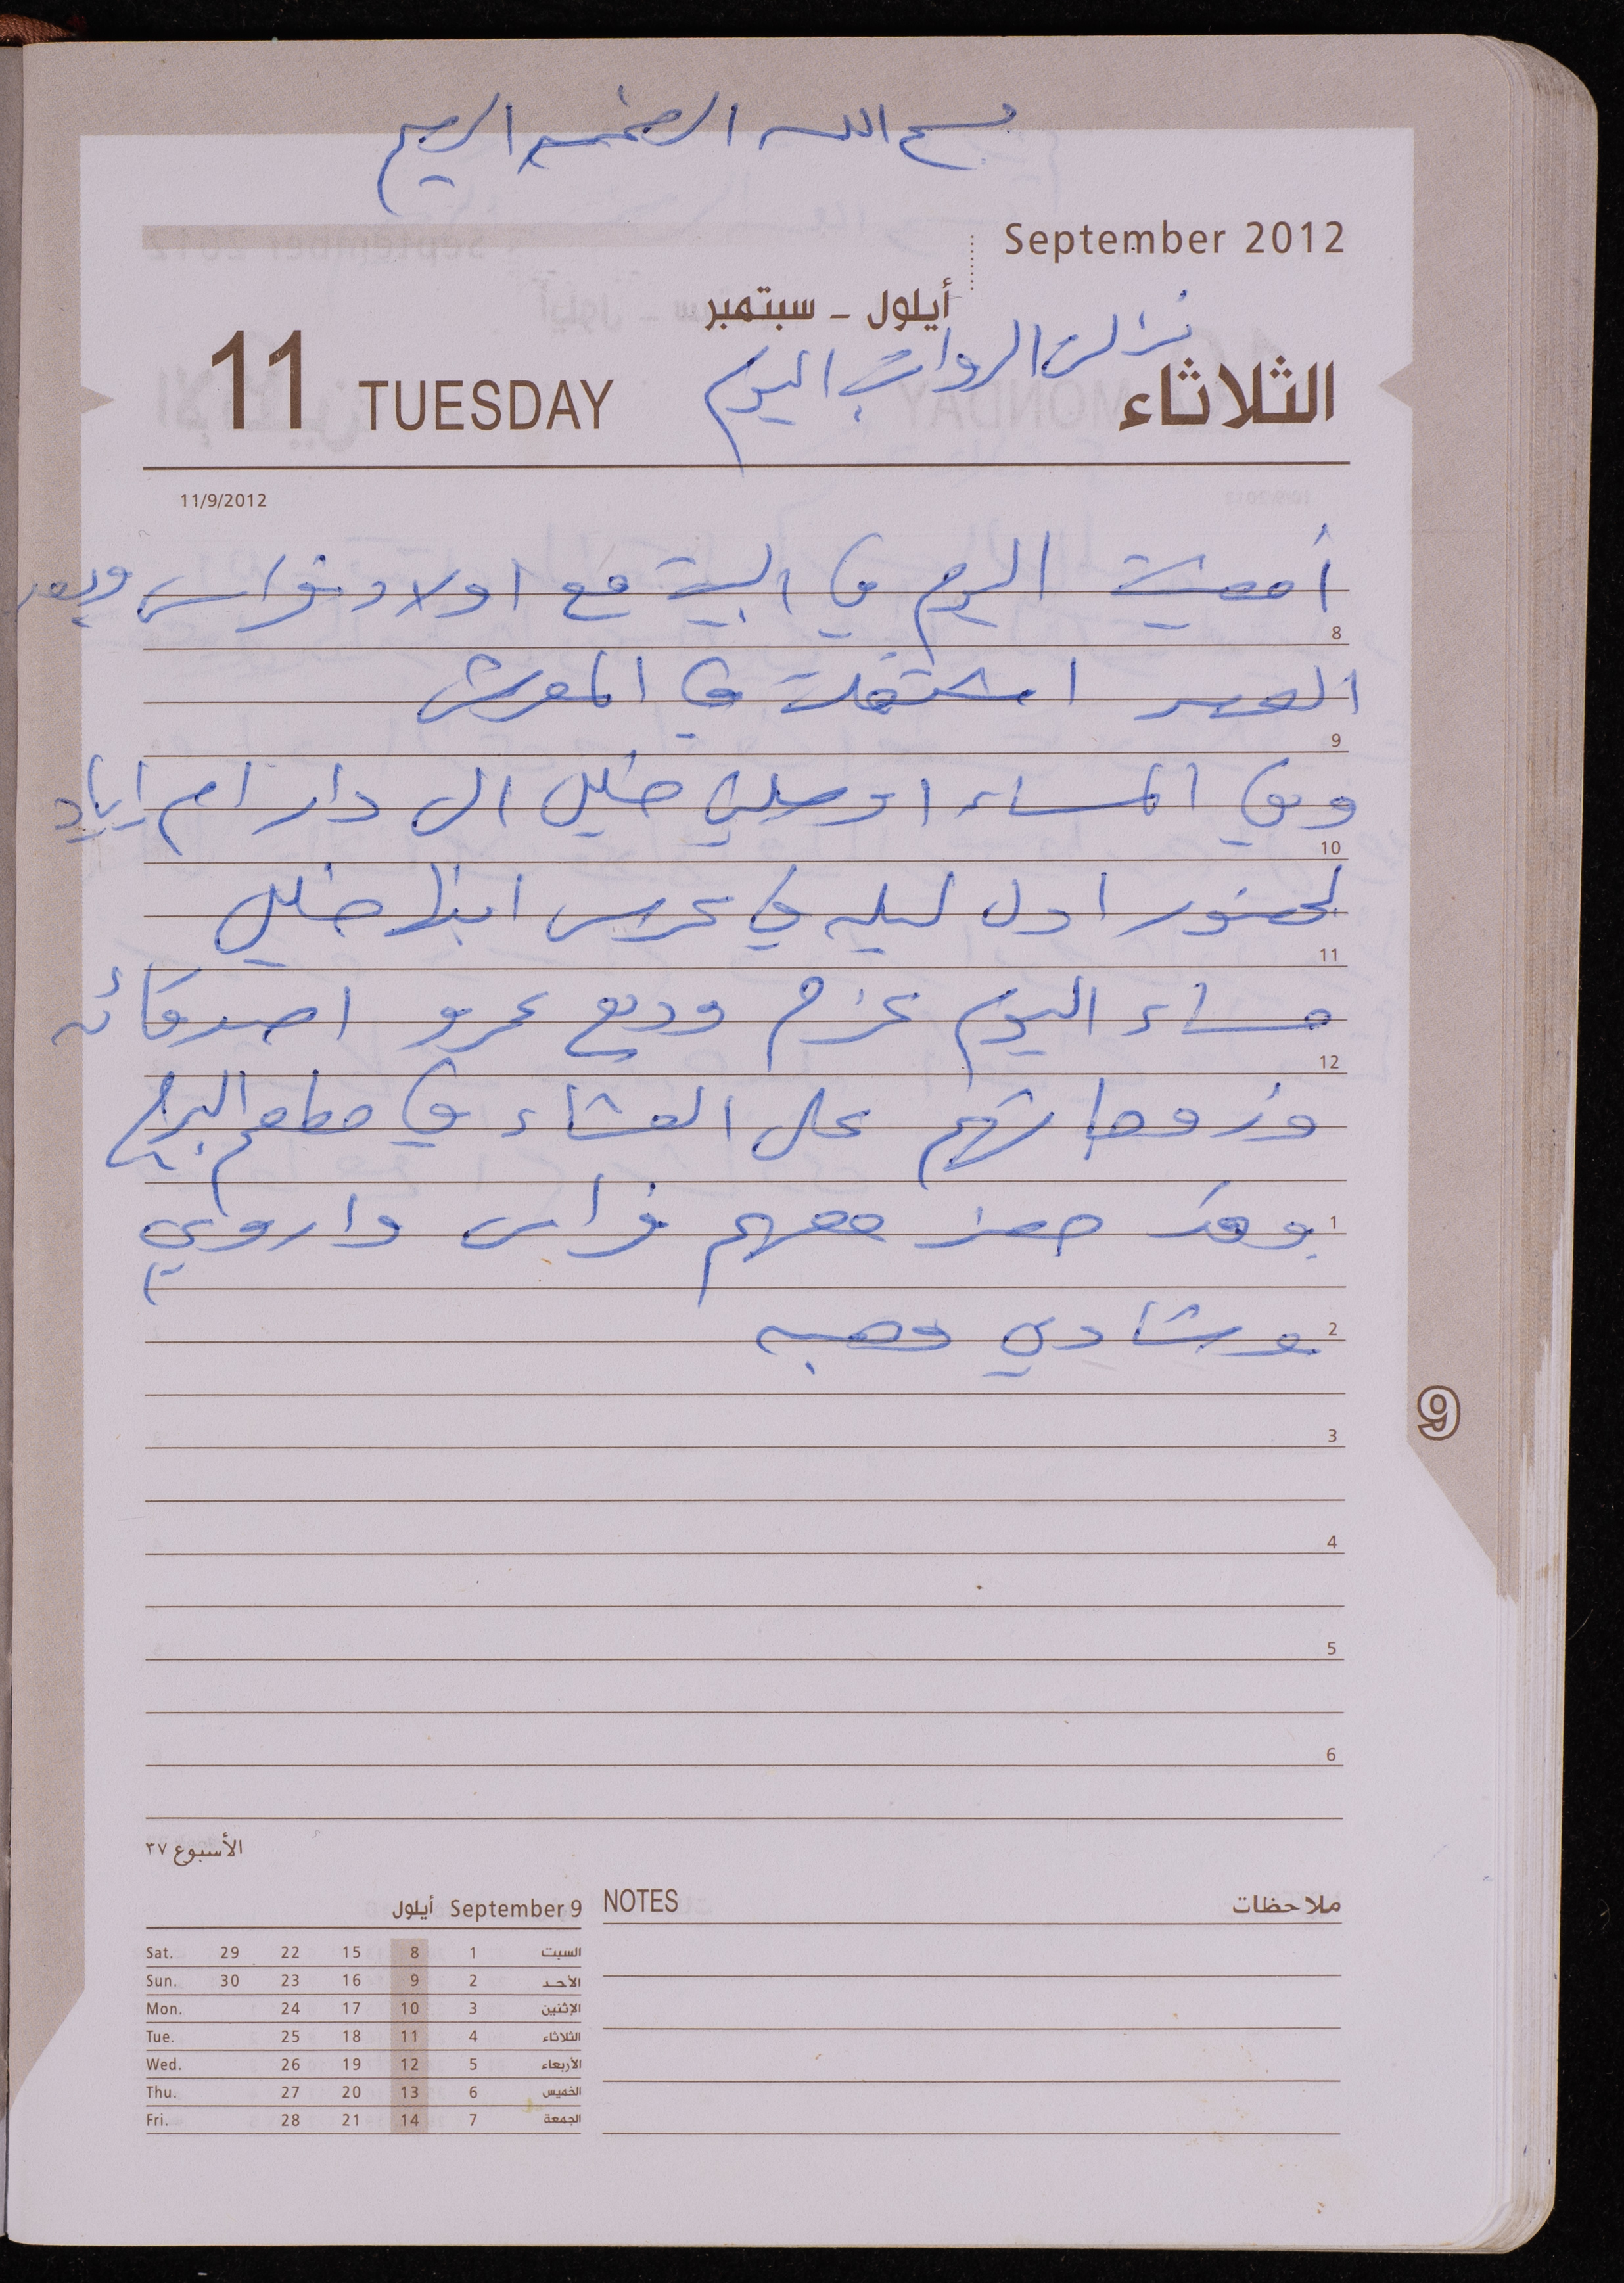 بسم الله الرحمن الرحيم
September 2012
أيلول - سبتمبر
نزلت الرواتب اليوم
11 TUESDAY الثلاثاء
11/9/2012
أمضيت اليوم في البيت مع اولاد فراس وبعد
8
العصر اشتغلت في المعرش
9
وفي المساء اوصلني خليل الى دار ام اياد
10
لحضور اول ليله في عرس ابنها خليل
11
مساء اليوم عزم وديع عمرو اصدقائه
12
وزوجاتهم على العشاء في مطعم البرج
وقد حضر معهم فراس واروى
1
وشادي وهبه
2
9
3
4
5
6
الأسبوع ٣٧
أيلول September 9
NOTES ملاحظات
Sat. 29 22 15 8 1 السبت
Sun. 30 23 16 9 2 الأحد
Mon. 24 17 10 3 الإثنين
Tue. 25 18 11 4 الثلاثاء
Wed. 26 19 12 5 الأربعاء
Thu. 27 20 13 6 الخميس
Fri. 28 21 14 7 الجمعة